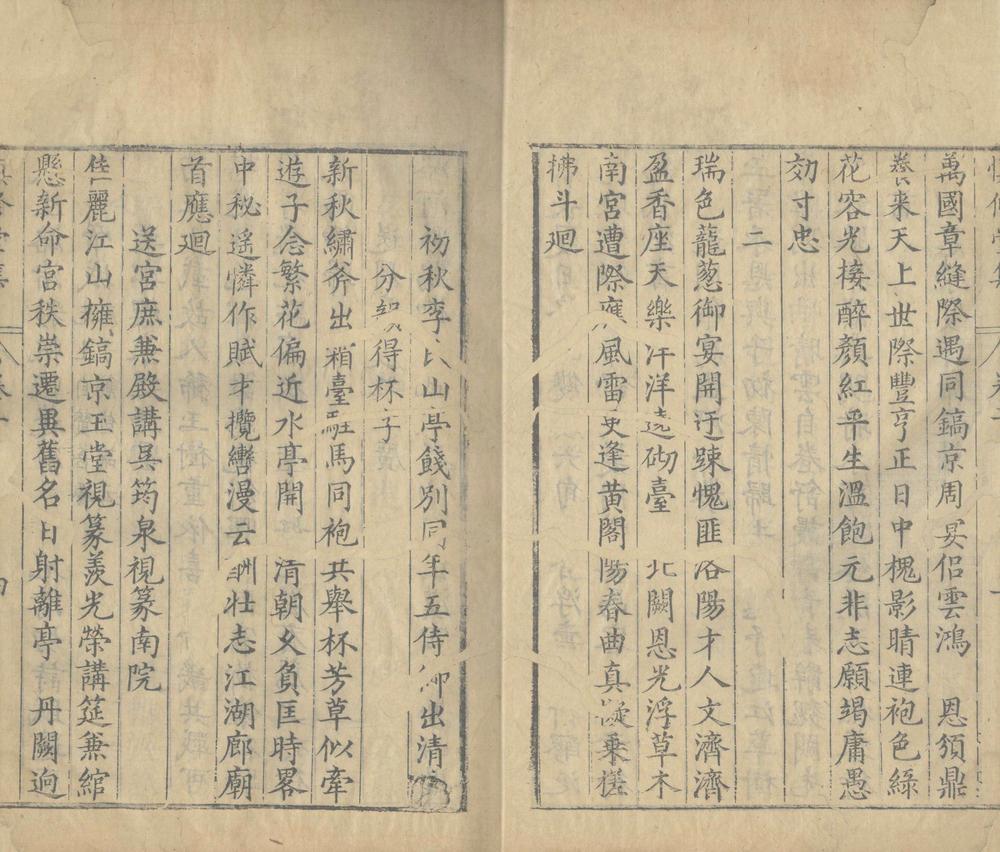 萬國章縫際遇同鎬京周宴侶雲鴻　恩頒鼎
養來天上世際豐亨正日中槐影晴連袍色綠
花容光接醉顏紅平生溫飽元非志願竭庸愚
効寸忠
二
瑞色龍葱御宴開迂踈愧匪洛陽才人文濟濟
盈香座天樂洋洋遶砌臺　北闕恩光浮草木
南宮遭際應風雷更逢黃閣陽春曲真擬乘槎
拂斗廻
初秋李氏山亭餞別同年五侍御出清
分韻得杯字
新秋繡斧出霜臺駐馬同袍共舉杯芳草似牽
遊子念繁花偏近水亭開　清朝久負匡時畧
中秘遥憐作賦才攬轡漫云酬壮志江湖廊廟
首應廻
送宮庶兼殿講吳筠泉視篆南院
佳麗江山擁鎬京玉堂視篆羨光榮講筵兼綰
懸新命宮秩崇遷異舊名日射離亭　丹闕逈